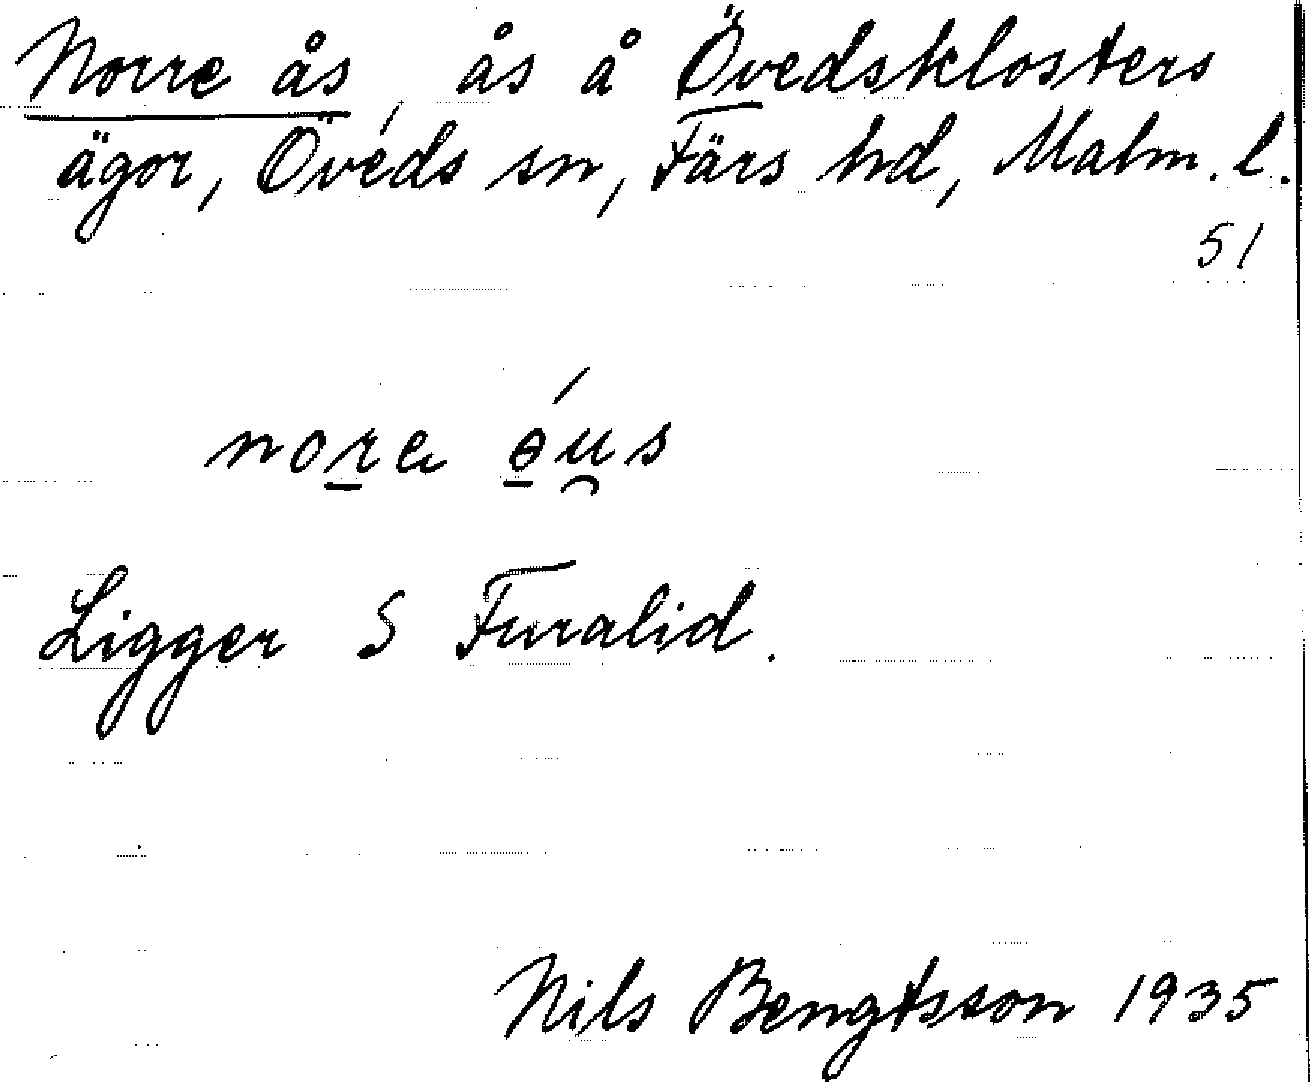 Norre ås, ås å Övedsklosters
ägor, Öveds sn, Färs hd, Malm. l.
51
Ligger S Furalid.
Nils Bengtsson 1935